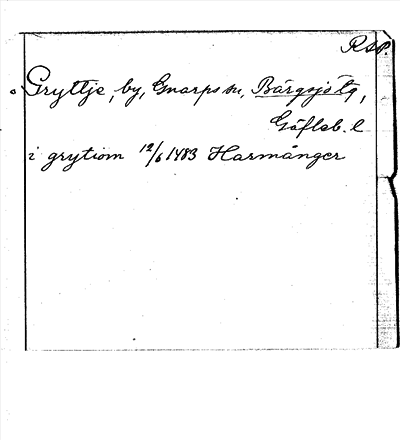 RAP.
Gryttje, by, Gnarps sn, Bärgsjö tg,
Gäfleb. l
i grytiom 12/6 1483 Harmånger